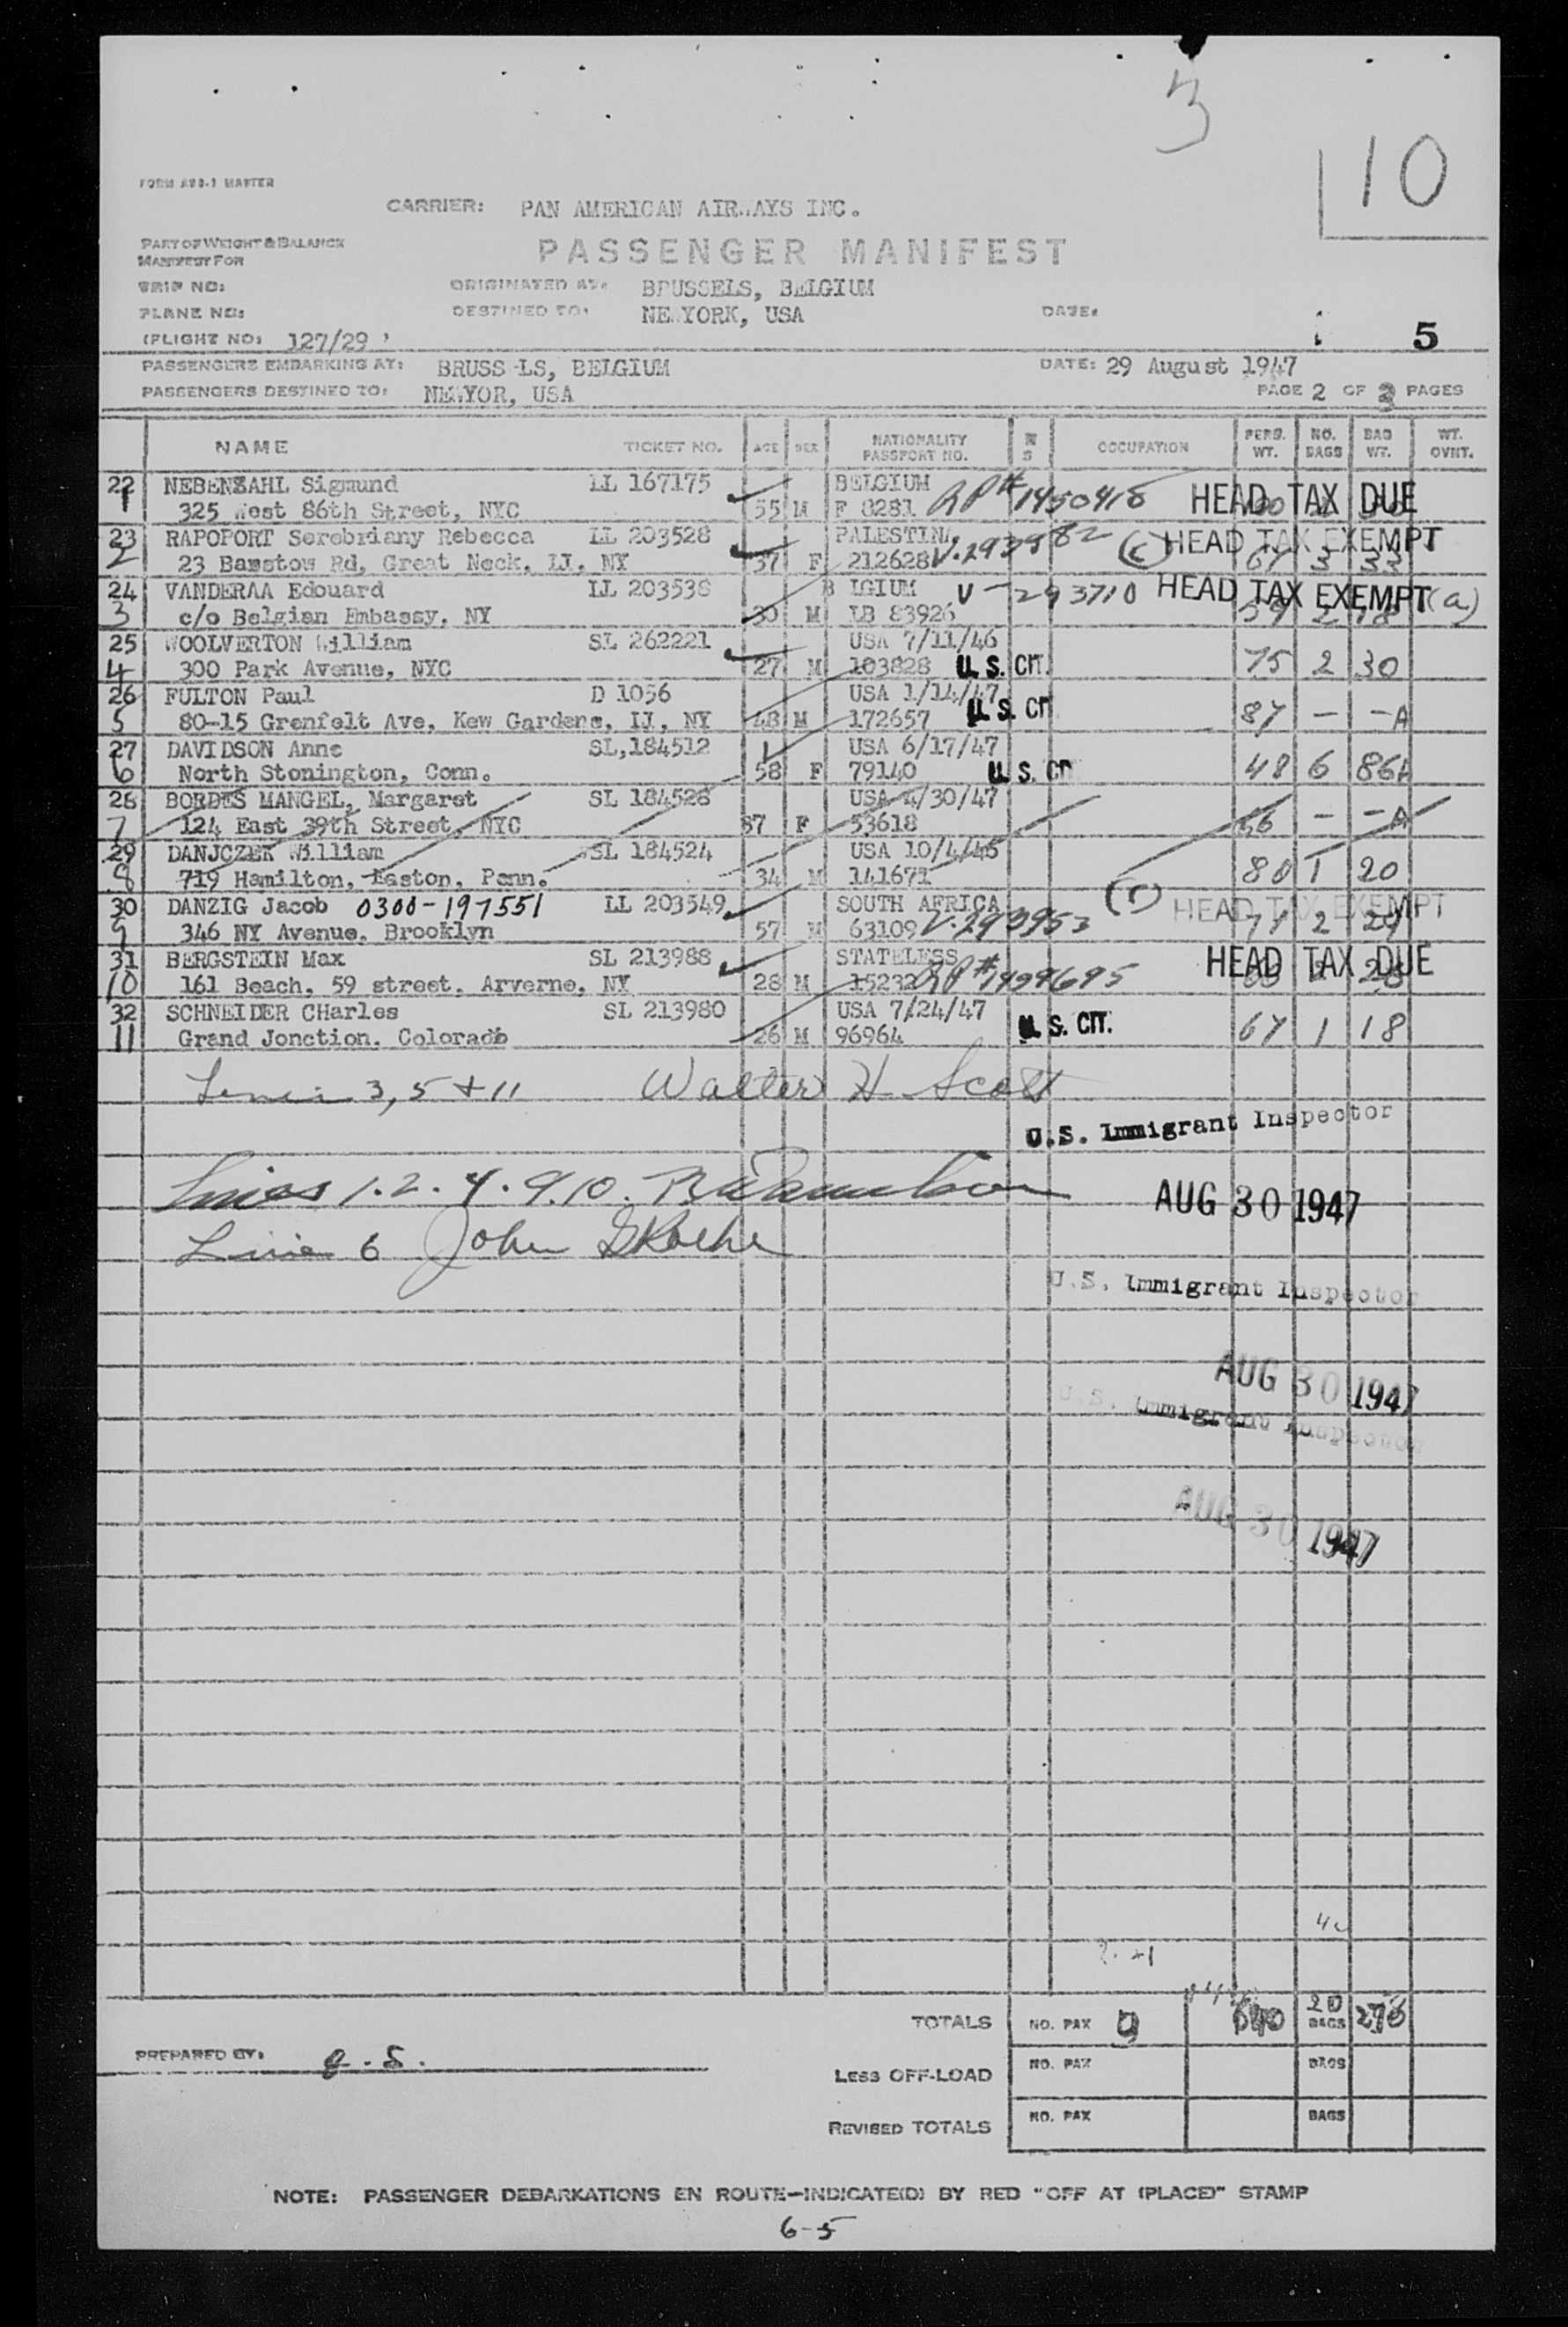 3
10
FORM A93-1 MASTER
CARRIER: PAN AMERICAN AIRWAYS INC.
PART OF WEIGHT & BALANCE
MANIFEST FOR
PASSENGER MANIFEST
TRIP NO:
ORIGINATED AT: BRUSSELS, BELGIUM
PLANE NO:
DESTINED TO: NEWYORK, USA
DATE:
(FLIGHT NO: 127/29
5
PASSENGERS EMBARKING AT: BRUSS LS, BELGIUM
DATE: 29 August 1947
PASSENGERS DESTINED TO: NEWYOR, USA
PAGE 2 OF 3 PAGES
NAME TICKET NO. AGE SEX NATIONALITY PASSPORT NO. OCCUPATION PERS. WT. NO. BAGS BAG WT. WT. OVNT.
22 NEBENZAHL Sigmund LL 167175 BELGIUM RP# 1450418 HEAD TAX DUE
1 325 West 86th Street, NYC 55 M F 8281
23 RAPOPORT Serebriany Rebecca LL 203528 PALESTINA (c) HEAD TAX EXEMPT
2 23 Barstow Rd, Great Neck, LI, NY 37 F 212628 67 3 33
24 VANDERAA Edouard LL 203538 B LGIUM V-293710 HEAD TAX EXEMPT (a)
3 c/o Belgian Embassy, NY 30 M LB 83926 59 2 18
25 WOOLVERTON William SL 262221 USA 7/11/46
4 300 Park Avenue, NYC 27 M 103828 U.S. CIT. 75 2 30
26 FULTON Paul D 1056 USA 1/14/47
5 80-15 Grenfelt Ave, Kew Gardens, LI, NY 48 M 172657 U.S. CIT 87 - - A
27 DAVIDSON Anne SL,184512 USA 6/17/47
6 North Stonington, Conn. 58 F 79140 U.S. CIT 48 6 86A
28 BORDES MANGEL, Margaret SL 184528 USA 4/30/47
7 124 East 39th Street, NYC 37 F 53618 - - A
29 DANJCZEK William SL 184524 USA 10/4/46
8 719 Hamilton, Easton, Penn. 34 M 141671 80 1 20
30 DANZIG Jacob 0300-197551 LL 203549 SOUTH AFRICA (r) HEAD TAX EXEMPT
9 346 NY Avenue, Brooklyn 57 M 63109 V.293953 2
31 BERGSTEIN Max SL 213988 STATELESS HEAD TAX DUE
10 161 Beach, 59 street, Arverne, NY 28 M 15232 RP# 1459695
32 SCHNEIDER CHarles SL 213980 USA 7/24/47
11 Grand Jonction, Colorado 26 M 96964 U.S. CIT. 67 1 18
Lines 3, 5 + 11 Walter H Scott
U.S. Immigrant Inspector
Lines 1.2.4.9.10.
AUG 30 1947
Line 6 John
U.S. Immigrant Inspector
AUG 30 1947
U.S. Immigrant Inspector
AUG 30 1947
TOTALS NO. PAX 9 640 20 BAGS 276
PREPARED BY:
LESS OFF-LOAD NO. PAX BAGS
REVISED TOTALS NO. PAX BAGS
NOTE: PASSENGER DEBARKATIONS EN ROUTE-INDICATE(D) BY RED "OFF AT (PLACE)" STAMP
6-5